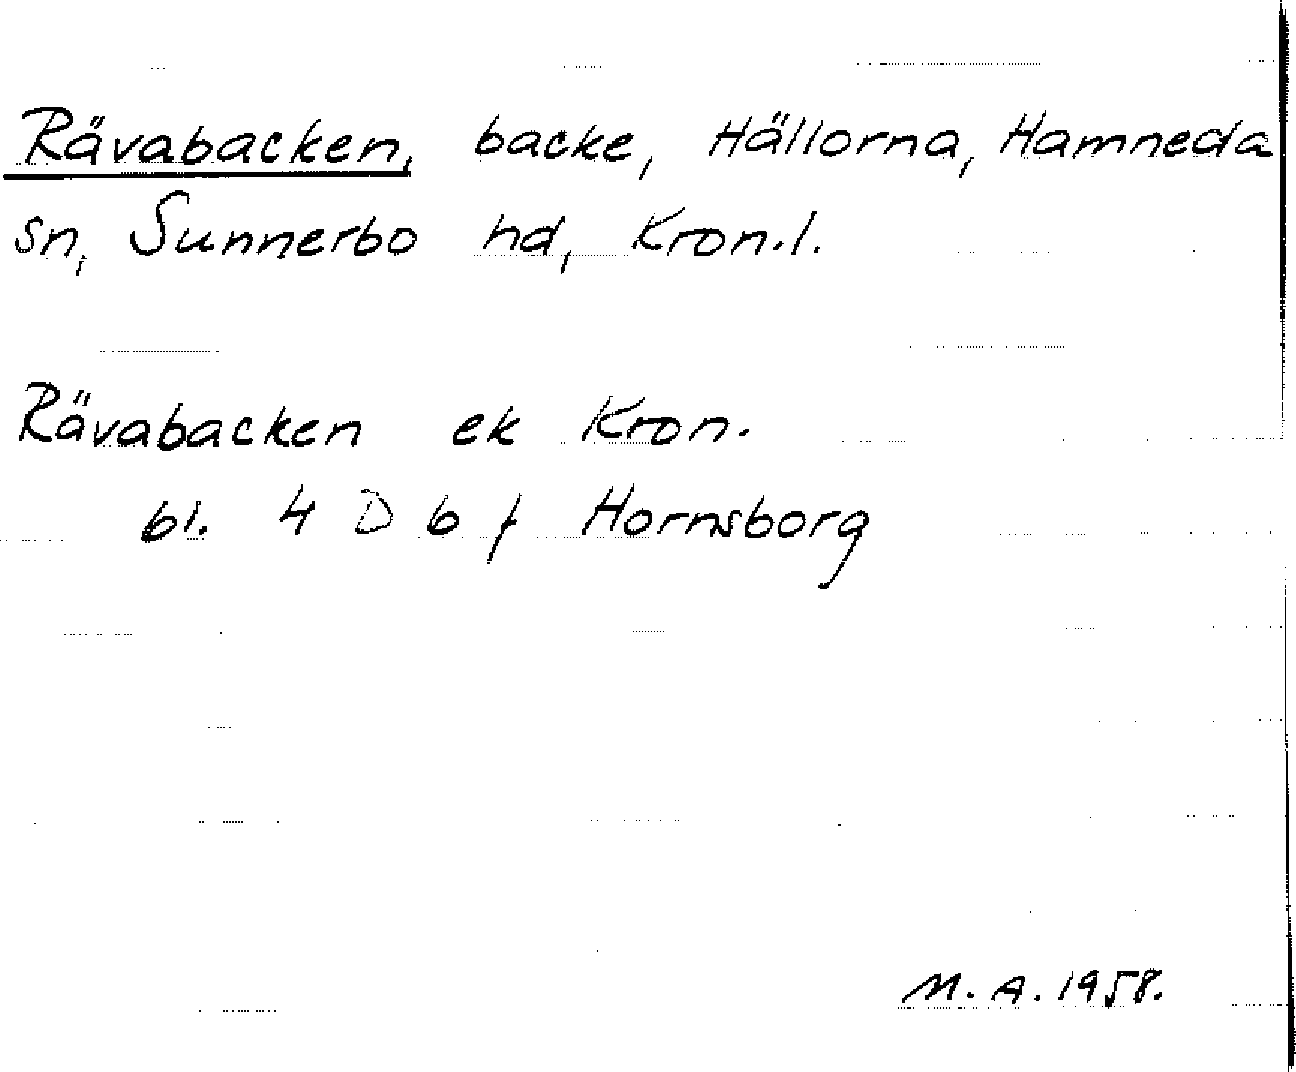 Rävabacken, backe, Hällorna, Hamneda
sn, Sunnerbo hd, Kron.l.
Rävabacken ek Kron.
bl. 4 D b f Hornsborg
M. A. 1958.